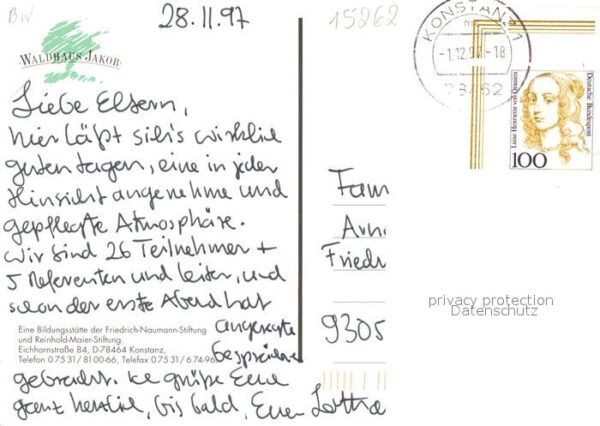 BW
28.11.97
15262
WALDHAUS JAKOB
KONSTANZ 1
-1.12.97-18
78462
Deutsche Bundespost
Luise Henriette von Oranien
100
Liebe Eltern,
hier läßt sich's wirklich
guten tagen, eine in jeder
Hinsicht angenehme und
gepflegte Atmosphäre.
Wir sind 26 Teilnehmer +
5 Referenten und Leiter, und
schon der erste Abend hat
angeregte
Gespräche
gebracht. Ich grüße Euch
ganz herzlich, bis bald, Euer Lotha
Eine Bildungsstätte der Friedrich-Naumann-Stiftung
und Reinhold-Maier-Stiftung.
Eichhornstraße 84, D-78464 Konstanz,
Telefon 0 75 31/ 8100 66, Telefax 0 75 31/ 6 74 96
Fam
Arn
Friedr
9305
privacy protection
Datenschutz